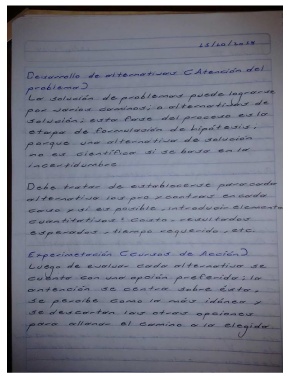 15/10/2018
Desarrollo de alternativas (Atención del
problema)
La solución de problemas puede lograrse
por varios caminos, o alternativas de
solución; esta fase del proceso es la
etapa de formulación de hipótesis,
porque una alternativa de solución
no es científica si se basa en la
incertidumbre
Debe tratar de establecerse para cada
alternativa los pro y contras en cada
caso y si es posible, introducir elemento
cuantitativos: Costo, resultados
esperados, tiempo requerido, etc.
Experimentación (cursos de Acción)
Luego de evaluar cada alternativa se
cuenta con una opción preferida; la
antención se centra sobre ésta,
se percibe como la más idónea y
se descartan las otras opciones
para allanar el camino a la elegida